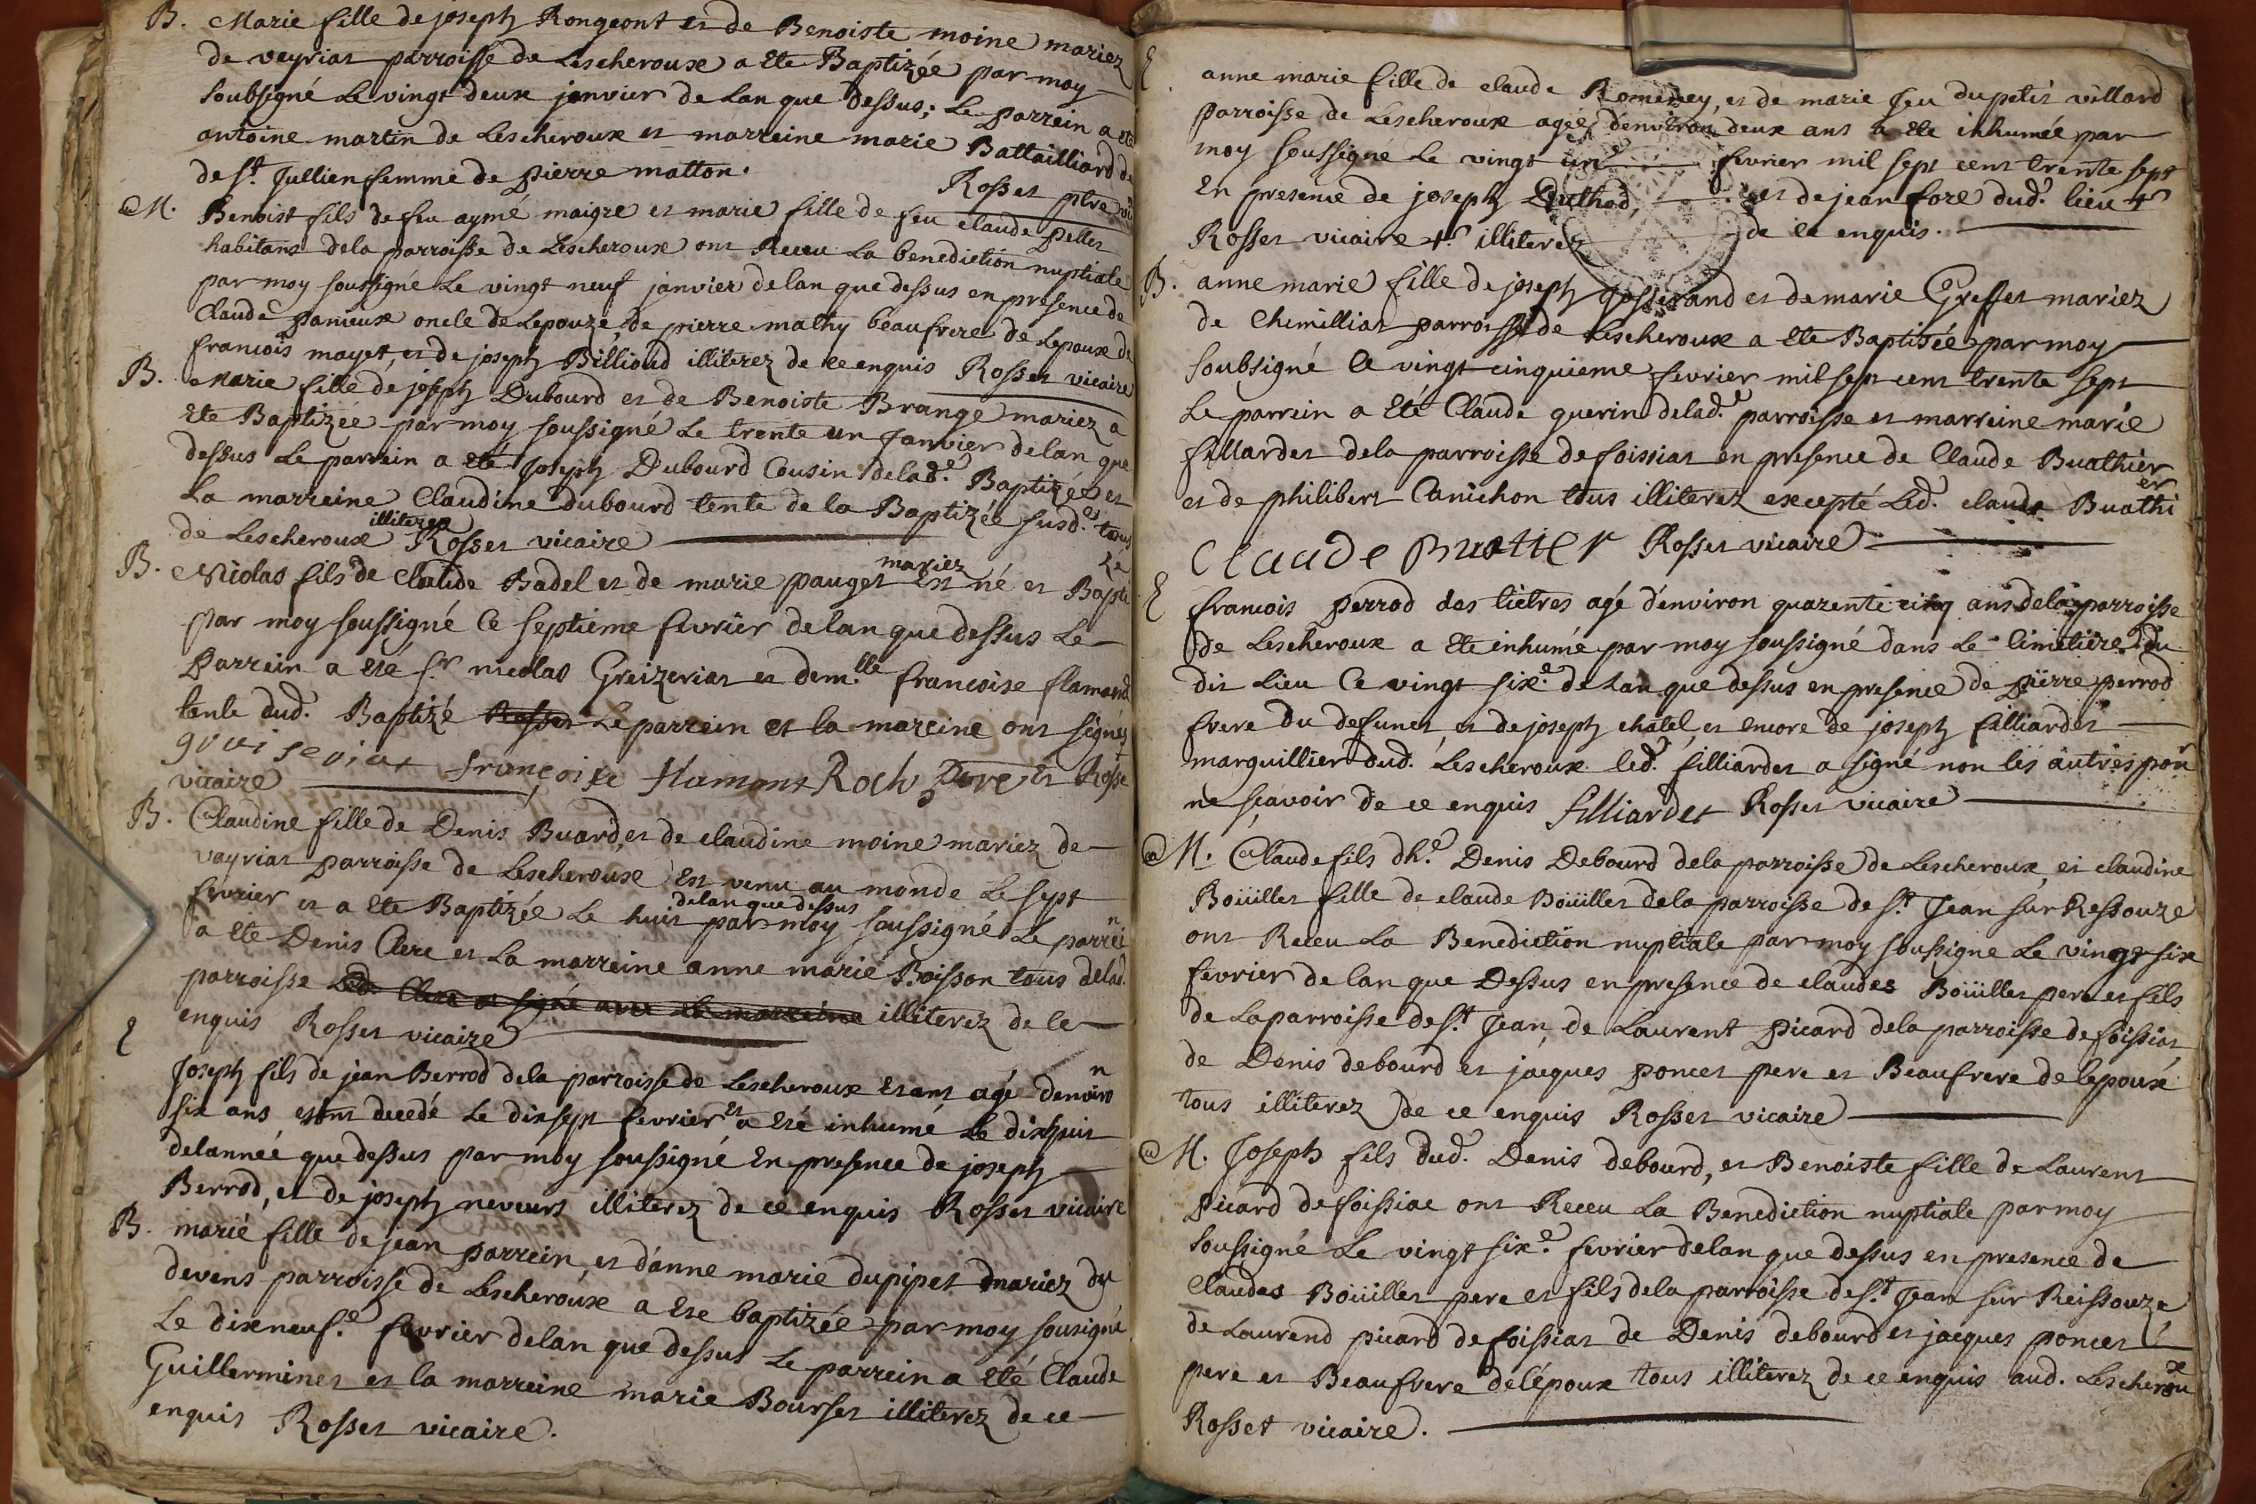 B. Marie fille de joseph Rongeont et de Benoiste moine mariez
de veyriat parroisse de Lescheroux a ete Baptizée par moy
soubsigné Le vingt deux janvier de Lan que dessus; Le parrein a eté
antoine martin de Lescheroux et marreine marie Battailliard de
de st. Jullien femme de pierre matton. Rosset ptre vic
M. Benoist fils de feu aymé maigre et marie fille de feu claude pellet
habitans de la parroisse de Lescheroux ont Receu La benediction nuptiale
par moy soussigné Le vingt neuf janvier de lan que dessus en presence de
Claude panieux oncle de Lepouze de pierre mathy beaufrere de Lepoux de
francois mayet, et de joseph Billioud illiterez de ce enquis Rosset vicaire
B. Marie fille de joseph Dubourd et de Benoiste Brange mariez a
ete Baptizee par moy soussigné Le trente un Janvier de lan que
dessus Le parrein a eté Joseph Dubourd Cousin de lad.e Baptizée et
La marreine Claudine Dubourd tente de la Baptizée susd.es tous
de Lescheroux illiterez Rosset vicaire
B. Nicolas fils de Claude Badel et de marie pauget mariez Est né et Bapti Ze
par moy soussigné Ce septieme fevrier de lan que dessus Le
parrein a eté sr nicolas Greizeriat et dem.lle francoise flamand
tente dud. Baptizé Rosset Le parrein et la mareine ont signés
francoise flamant Roch Rosse
vicaire
B. Claudine fille de Denis Buard, et de claudine moine mariez de
vayriat parroisse de Lescheroux Est venu au monde Le sept
fevrier et a ete Baptizée Le huit de lan que dessus par moy soussigné Le parrein
a ete Denis Clerc et La marreine anne marie Boisson tous de lad.
parroisse Led. Clerc a signé avec la marreine illiterez de ce
enquis Rosset vicaire
E Joseph fils de jean Berrod de la parroisse de Lescheroux etant agé denviron
six ans etant decedé Le dixsept fevrier et a eté inhumé Le dixhuit
de lannéé que dessus par moy soussigné En presence de joseph
Berrod, et de joseph neveurs illiterez de ce enquis Rosset vicaire
B. marie fille de jean parrein, et d'anne marie dupipet mariez du
devens parroisse de Lescheroux a ete baptizée par moy sousigné
Le dixneuf.e fevrier de lan que dessus Le parrein a eté Claude
Guillerminet et la marreine marie Bourset illiterez de ce
enquis Rosset vicaire.
E anne marie fille de claude Romeney, et de marie Jeu du petit villard
parroisse de Lescheroux ageé d'environ deux ans a ete inhumée par
moy soussigné Le vingt un.e fevrier mil sept cent trente sept
En presence de joseph Duthod, et de jean fore dud. lieu
Rosset vicaire illiterez de ce enquis.
B. anne marie fille de joseph Josserand et de marie Greffet mariez
de Chemilliat parroisse de Lescheroux a ete Baptiséé par moy
soubsigné le vingt cinquieme fevrier mil sept cent trente sept
Le parrein a Eté Claude guerin de lad.e parroisse et marreine marie
fillardet de la parroisse de foissiat en presence de Claude Buathier
et de philibert Canichon tous illiterez excepté Led. claude Buathier
Claude Buatier Rosset vicaire
E francois perrod des lietres agé d'environ quarente cinq ans de la parroisse
de Lescheroux a ete inhumé par moy soussigné dans Le cimetiere du
dit Lieu Ce vingt six.e de Lan que dessus en presence de pierre perrod
frere du defunct, et de joseph chatel, et encore de joseph filliardet
marguillier dud. Lescheroux led. filliardet a signé non les autres pour
ne scavoir de ce enquis filliardet Rosset vicaire
M. Claude fils dh.e Denis Debourd de la parroisse de Lescheroux, et claudine
Boüillet fille de claude Boüillet de la parroisse de st. Jean sur Ressouze
ont Receu La Benediction nuptiale par moy soussigne Le vingt six
fevrier de lan que Dessus en presence de claudes Boüillet pere et fils
de La parroisse de st. Jean, de Laurent picard de la parroisse de foissiat
de Denis debourd et jacques poncet pere et Beaufrere de lepoux
tous illiterez de ce enquis Rosset vicaire
M. Joseph fils dud. Denis debourd, et Benoiste fille de Laurent
picard de foissiac ont Receu La Benediction nuptiale par moy
soussigné Le vingt six.e fevrier de lan que dessus en presence de
Claudes Boüillet pere et fils de la parroisse de st. Jean sur Reissouze
de Laurend picard de foissiat de Denis debourd et jacques poncet
pere et Beaufrere de l'époux tous illiterez de ce enquis aud. Lescheroux
Rosset vicaire.